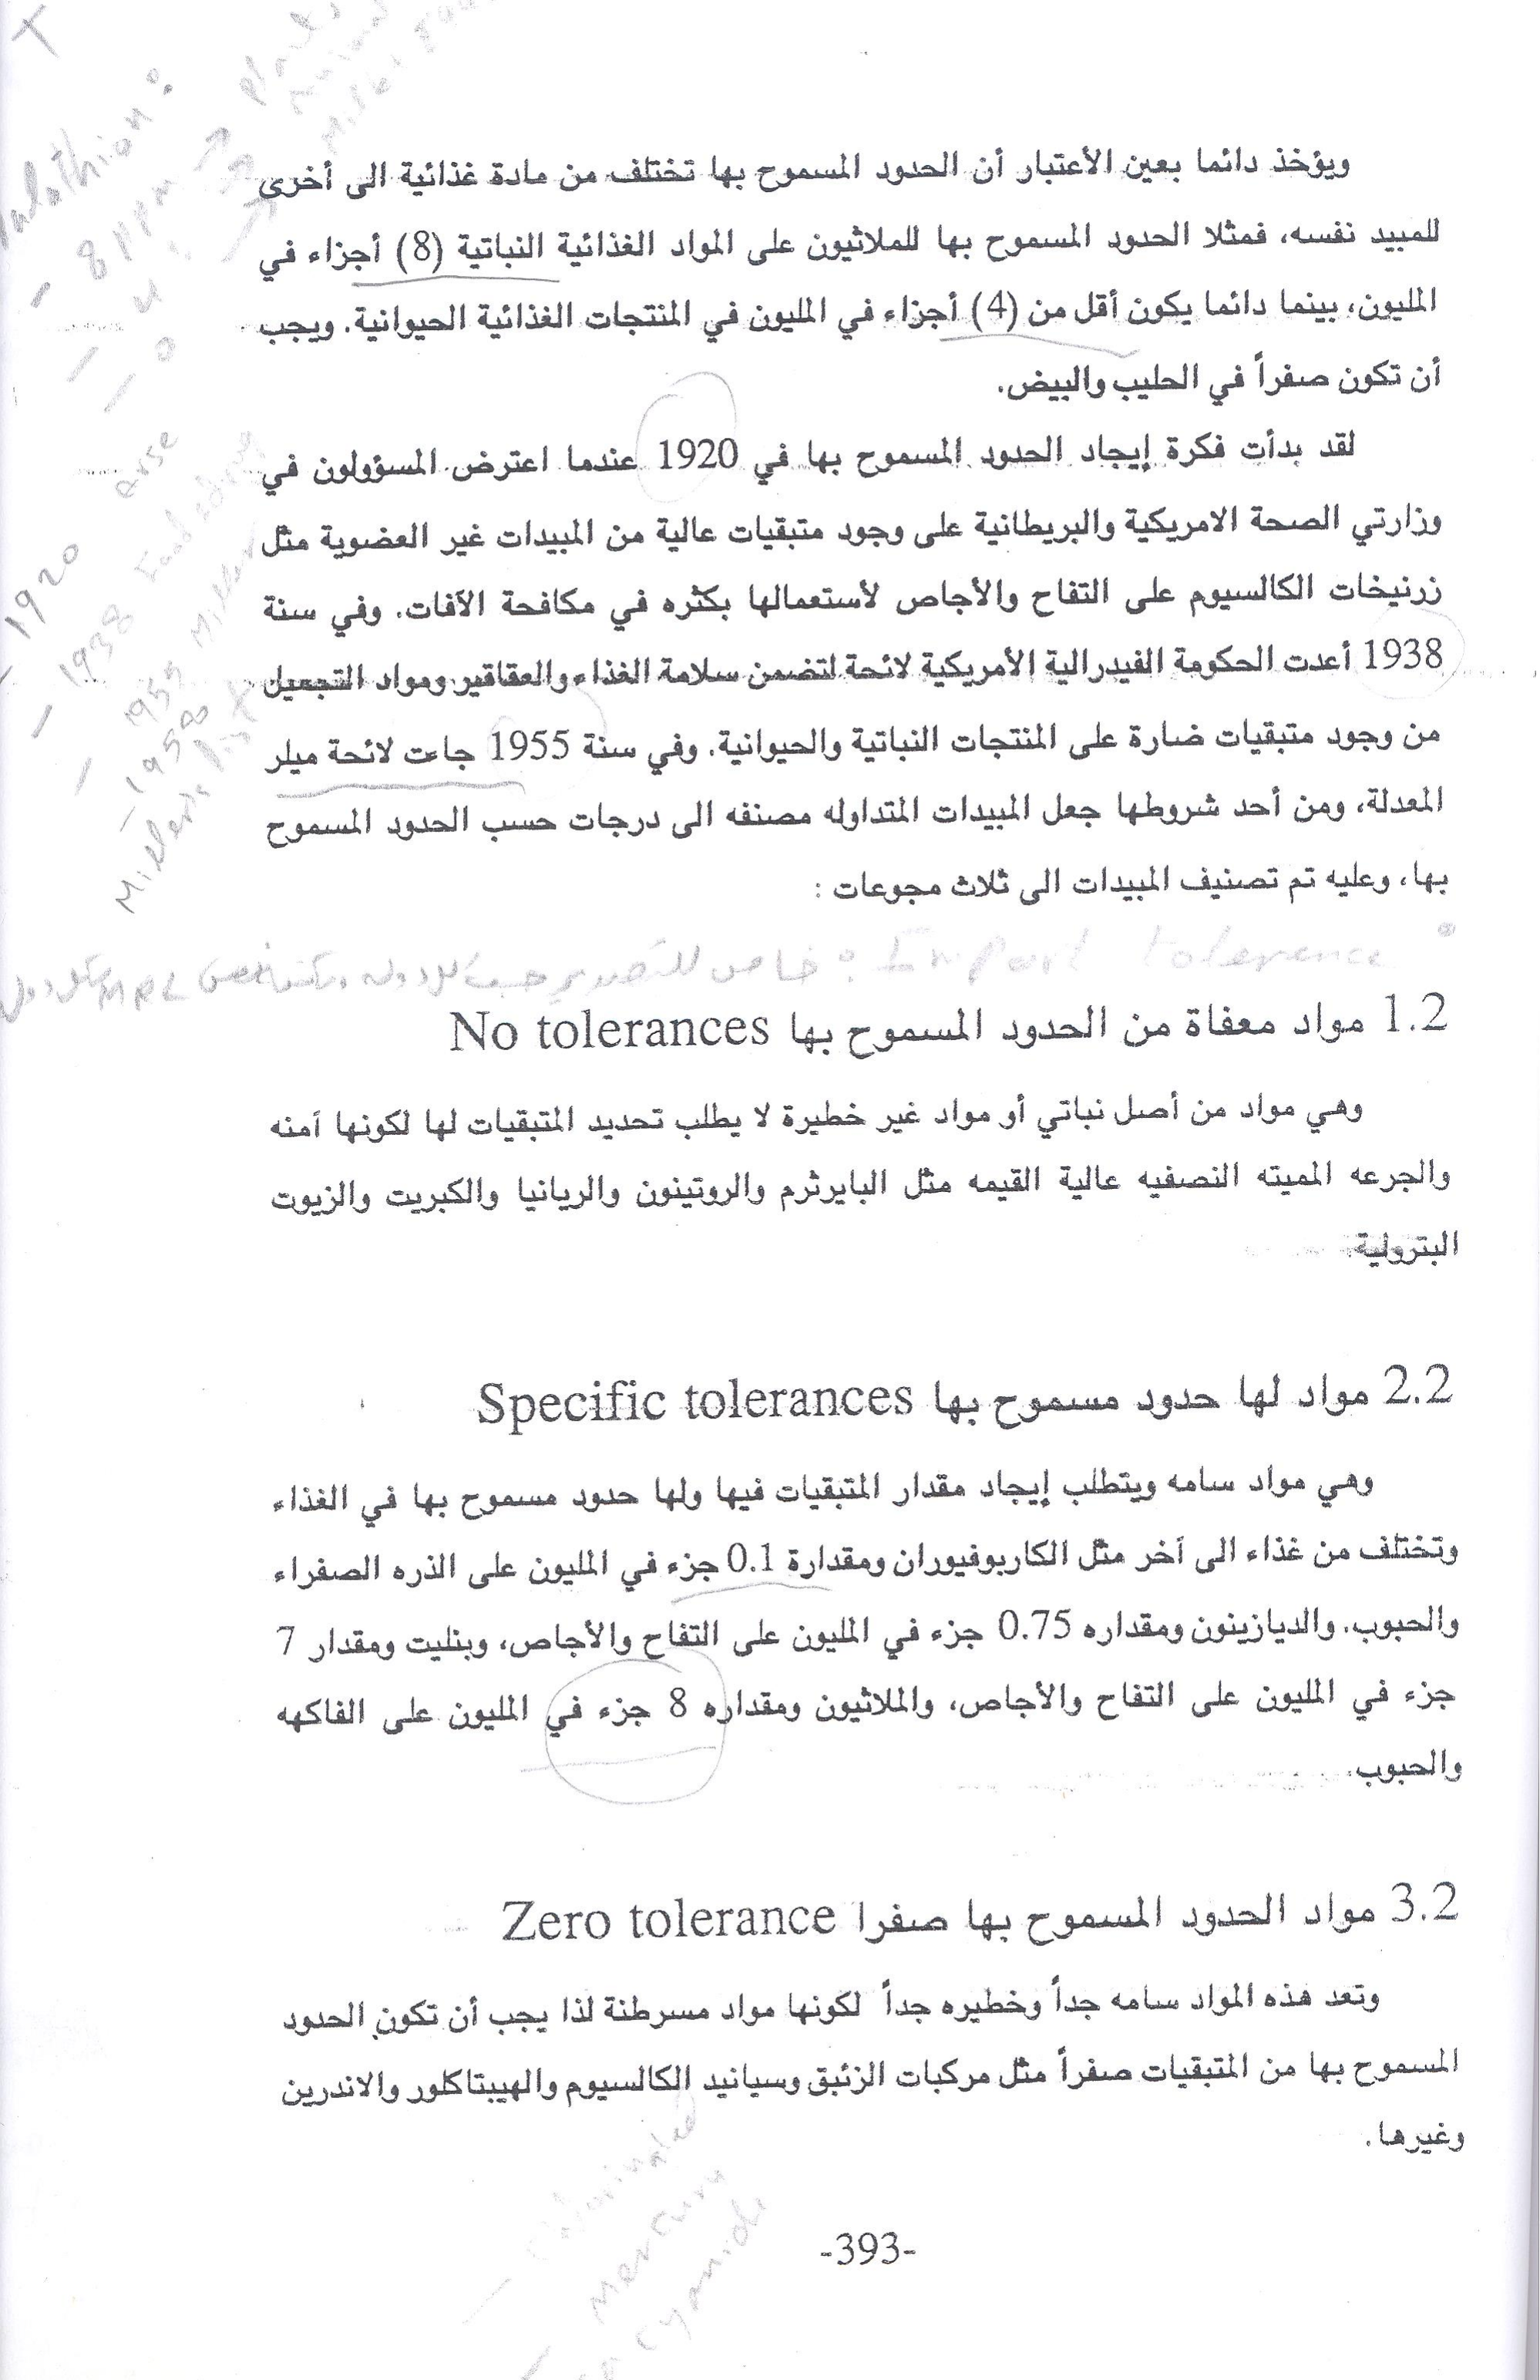 ويؤخذ دائما بعين الأعتبار أن الحدود المسموح بها تختلف من مادة غذائية الى أخرى
للمبيد نفسه، فمثلا الحدود المسموح بها للملاثيون على المواد الغذائية النباتية (8) أجزاء في
المليون، بينما دائما يكون أقل من (4) أجزاء في المليون في المنتجات الغذائية الحيوانية. ويجب
أن تكون صفراً في الحليب والبيض.
لقد بدأت فكرة إيجاد الحدود المسموح بها في 1920 عندما اعترض المسؤولون في
وزارتي الصحة الامريكية والبريطانية على وجود متبقيات عالية من المبيدات غير العضوية مثل
زرنيخات الكالسيوم على التفاح والأجاص لأستعمالها بكثره في مكافحة الآفات. وفي سنة
1938 أعدت الحكومة الفيدرالية الأمريكية لائحة لتضمن سلامة الغذاء والعقاقير ومواد التجعيل
من وجود متبقيات ضارة على المنتجات النباتية والحيوانية. وفي سنة 1955 جاءت لائحة ميلر
المعدلة، ومن أحد شروطها جعل المبيدات المتداوله مصنفه الى درجات حسب الحدود المسموح
بها، وعليه تم تصنيف المبيدات الى ثلاث مجوعات :
Import tolerence : خاص للتصدير
1.2 مواد معفاة من الحدود المسموح بها No tolerances
وهي مواد من أصل نباتي أو مواد غير خطيرة لا يطلب تحديد المتبقيات لها لكونها آمنه
والجرعه المميته النصفيه عالية القيمه مثل البايرثرم والروتينون والريانيا والكبريت والزيوت
البترولية.
2.2 مواد لها حدود مسموح بها Specific tolerances
وهي مواد سامه ويتطلب إيجاد مقدار المتبقيات فيها ولها حدود مسموح بها في الغذاء
وتختلف من غذاء الى آخر مثل الكاربوفيوران ومقدارة 0.1 جزء في المليون على الذره الصفراء
والحبوب. والديازينون ومقداره 0.75 جزء في المليون على التفاح والأجاص، وبنليت ومقدار 7
جزء في المليون على التفاح والأجاص، والملاثيون ومقداره 8 جزء في المليون على الفاكهه
والحبوب.
3.2 مواد الحدود المسموح بها صفرا Zero tolerance
وتعد هذه المواد سامه جداً وخطيره جداً لكونها مواد مسرطنة لذا يجب أن تكون الحدود
المسموح بها من المتبقيات صفراً مثل مركبات الزئبق وسيانيد الكالسيوم والهيبتاكلور والاندرين
وغيرها.
mercury
cyanide
-393-
- 8 ppm → plant
- 1920
- 1938
- 1955 Miller
- 1958